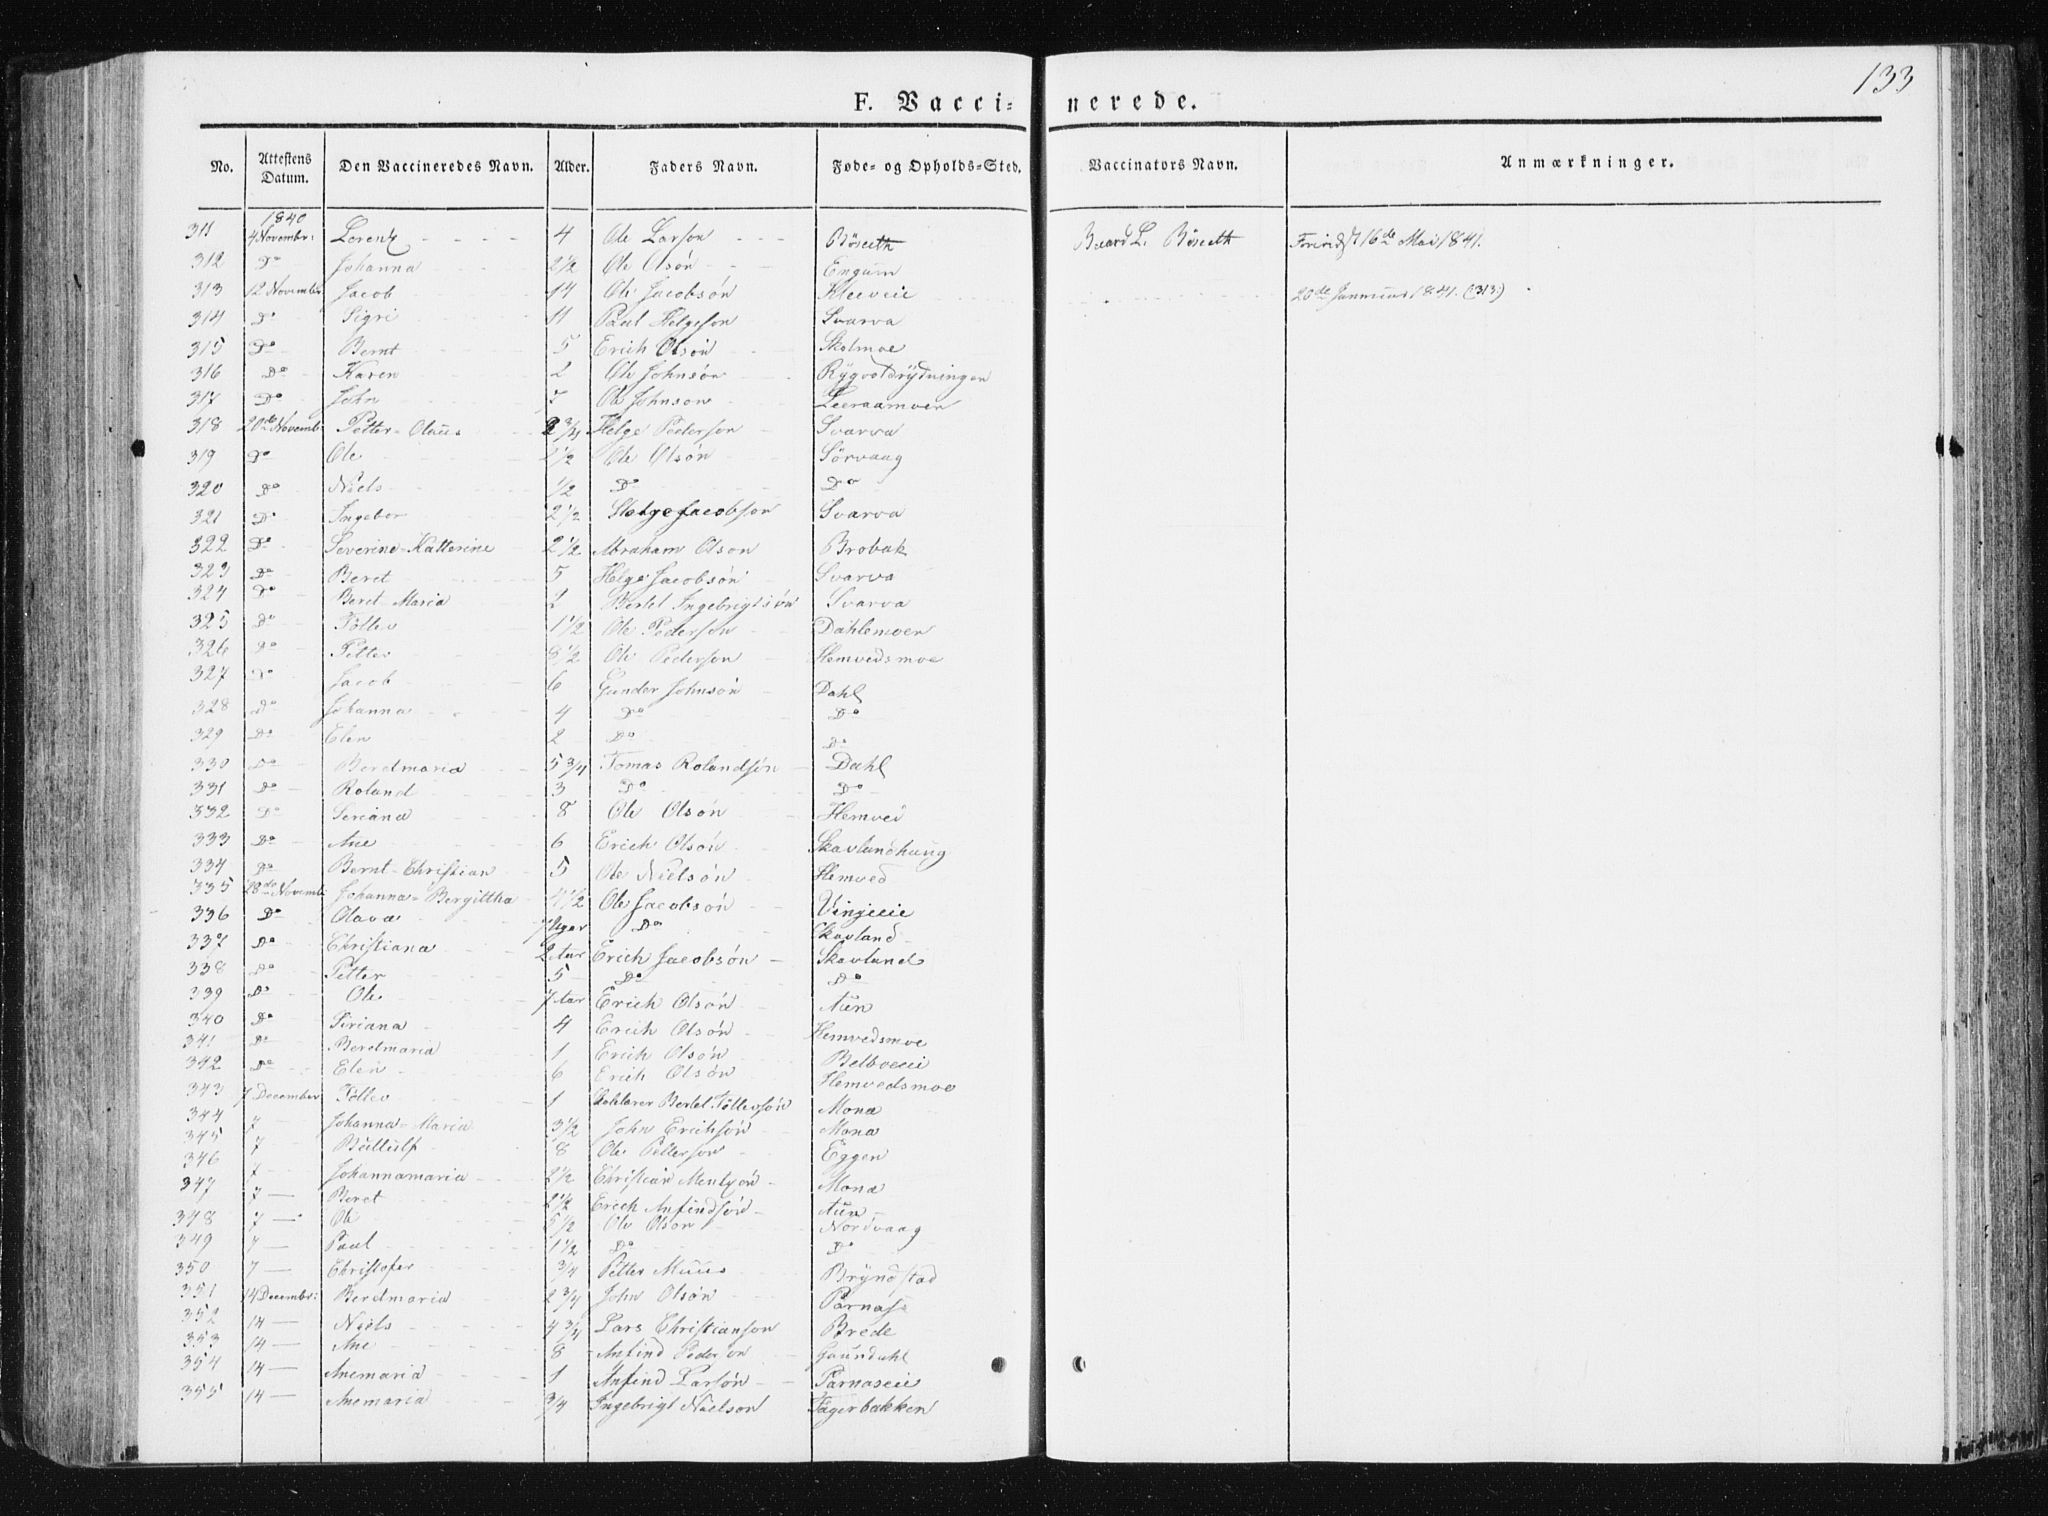 133
F. Vacci- nerede.
No. Attestens Datum. Den Vaccineredes Navn. Alder. Faders Navn. Føde- og Opholds-Sted. Vaccinators Navn. Anmærkninger.
1840
311 4 Novembr: Lorentz 4 Ole Larson Böseth Baard L. Böseth 16de Mai 1841.
312 Do Johanna 2 1/2 Ole Olsön Engum
313 12 November Jacob 14 Ole Jacobsön Kleeveie 20de Januar 1841. (:313:)
314 Do Sigri 11 Paul Helgeson Svarva
315 Do Bernt 5 Erich Olsön Skolmoe
316 Do Karen 2 Ole Johnsön
317 Do John 7 Ole Johnson Leeraamoen
318 20de Novemb Petter-Olaus 3/4 Helge Pederson Svarva
319 Do Ole 2 1/2 Ole Olsön Sörvaag
320 Do Niels 1/2 Do Do
321 Do Ingebor 2 1/2 Helge Jacobson Svarva
322 Do Severine-Katterine 2 1/2 Abraham Olson Brobak
323 Do Beret 5 Helge Jacobsön Svarva
324 Do Beret-Maria 2 Bertel Ingebrigtsön Svarva
325 Do Töllev 1 1/2 Ole Pederson Dahlemoen
326 Do Petter 8 1/2 Ole Pederson Hemvedsmoe
327 Do Jacob 6 Gunder Johnsön Dahl
328 Do Johanna 4 Do Do
329 Do Elen 2 Do Do
330 Do Beretmaria 5 3/4 Tomas Rolandsön Dahl
331 Do Roland 3 Do Do
332 Do Seriana 8 Ole Olsön Hemved
333 Do Ane 6 Erich Olsön Skavlandhaug
334 Do Bernt-Christian 5 Ole Nielsön Hemved
335 28de Novemb Johanna-Bergittha 4 1/2 Ole Jacobsön Vinjeeie
336 Do Olava 7 Uger Do Skavland
337 Do Christiana 2 Aar Erich Jacobsön Skavland
338 Do Petter 5 Do Do
339 Do Ole 7 Aar Erich Olsön Aün
340 Do Siriana 4 Erich Olsön Hemvedsmoe
341 Do Beretmaria 1 Erich Olsön
342 Do Elen 6 Erich Olsön Hemvedsmoe
343 7 December Töllev 1 Bertel Töllevsön Mona
344 7 Johanna-Maria 3 1/2 John Erichsön Mona
345 7 8 Ole Petterson Eggen
346 7 Johannamaria 2 1/2 Christian Mentzön Mona
347 7 Beret 2 1/2 Erich Anfindsön Aün
348 7 Ole 5 1/2 Ole Olson Nordvaag
349 7 Paul 1 1/2 Do Do
350 7 Christofer 3/4 Petter Muus Bryndstad
351 14 Decembr: Beretmaria 2 3/4 John Olsön Parnass
352 14 Niels 4 3/4 Lars Christianson Brede
353 14 Ane 8 Anfind Pederson
354 14 Anemaria 1 Anfind Larsön Parnaseie
355 14 Anemaria 3/4 Ingebrigt Nielson Fagerbakken